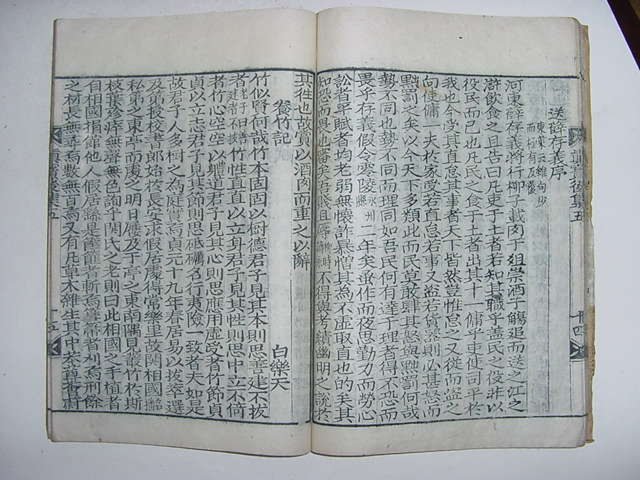 送薛存義序
東萊云雖句少
亦有反覆
河東薛存義將行柳子載肉于俎崇酒于觴追而送之江之
滸飲食之且告曰凡吏于土者若知其職乎盖民之役非以
役民而已也凡民之食于土者出其十一傭乎吏使司平於
我也今受其直怠其事者天下皆然豈惟怠之又從而盜之
向使傭一夫於家受若直怠若事又盜若貨器則必甚怒而
黜罰之矣以今天下多類此而民莫敢肆其怒與黜罰何哉
勢不同也勢不同而理同如吾民何有達于理者得不恐而
畏乎存義假令零陵永州二年矣蚤作而夜思勤力而勞心
訟者平賦者均老弱無懷詐暴憎其為不虛取直也的矣其
知恐而畏也審矣吾賤且辱不得與考績幽明之說於
其徃也故賞以酒肉而重之以辭
養竹記 白樂天
竹似賢何哉竹本固固以樹德君子見其本則思善建不拔
者竹性直直以立身君子見其性則思中立不倚
者竹心空空以體道君子見其心則思應用虛受者竹節貞
貞以立志君子見其節則思砥礪名行夷險一致者夫如是
故君子人多樹之為庭實焉貞元十九年春居易以拔萃選
及第授校書郎始於長安求假居處得常樂里故關相國
私第之東亭而處之明日屨及于亭之東南隅見叢竹於斯
枝葉殄瘁無聲無色詢乎關氏之老則曰此相國之手植者
自相國捐館他人假居繇是筐篚者斬焉篲箒者刈焉刑餘
之材長無尋焉數無百焉又有凡草木雜生其中